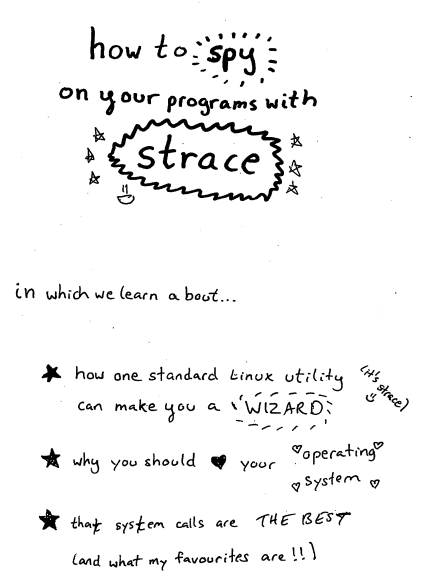 how to spy
on your programs with
strace
in which we learn about...
how one standard Linux utility
can make you a WIZARD
(it's strace)
why you should ♥ your operating
system
that system calls are THE BEST
(and what my favourites are!!)